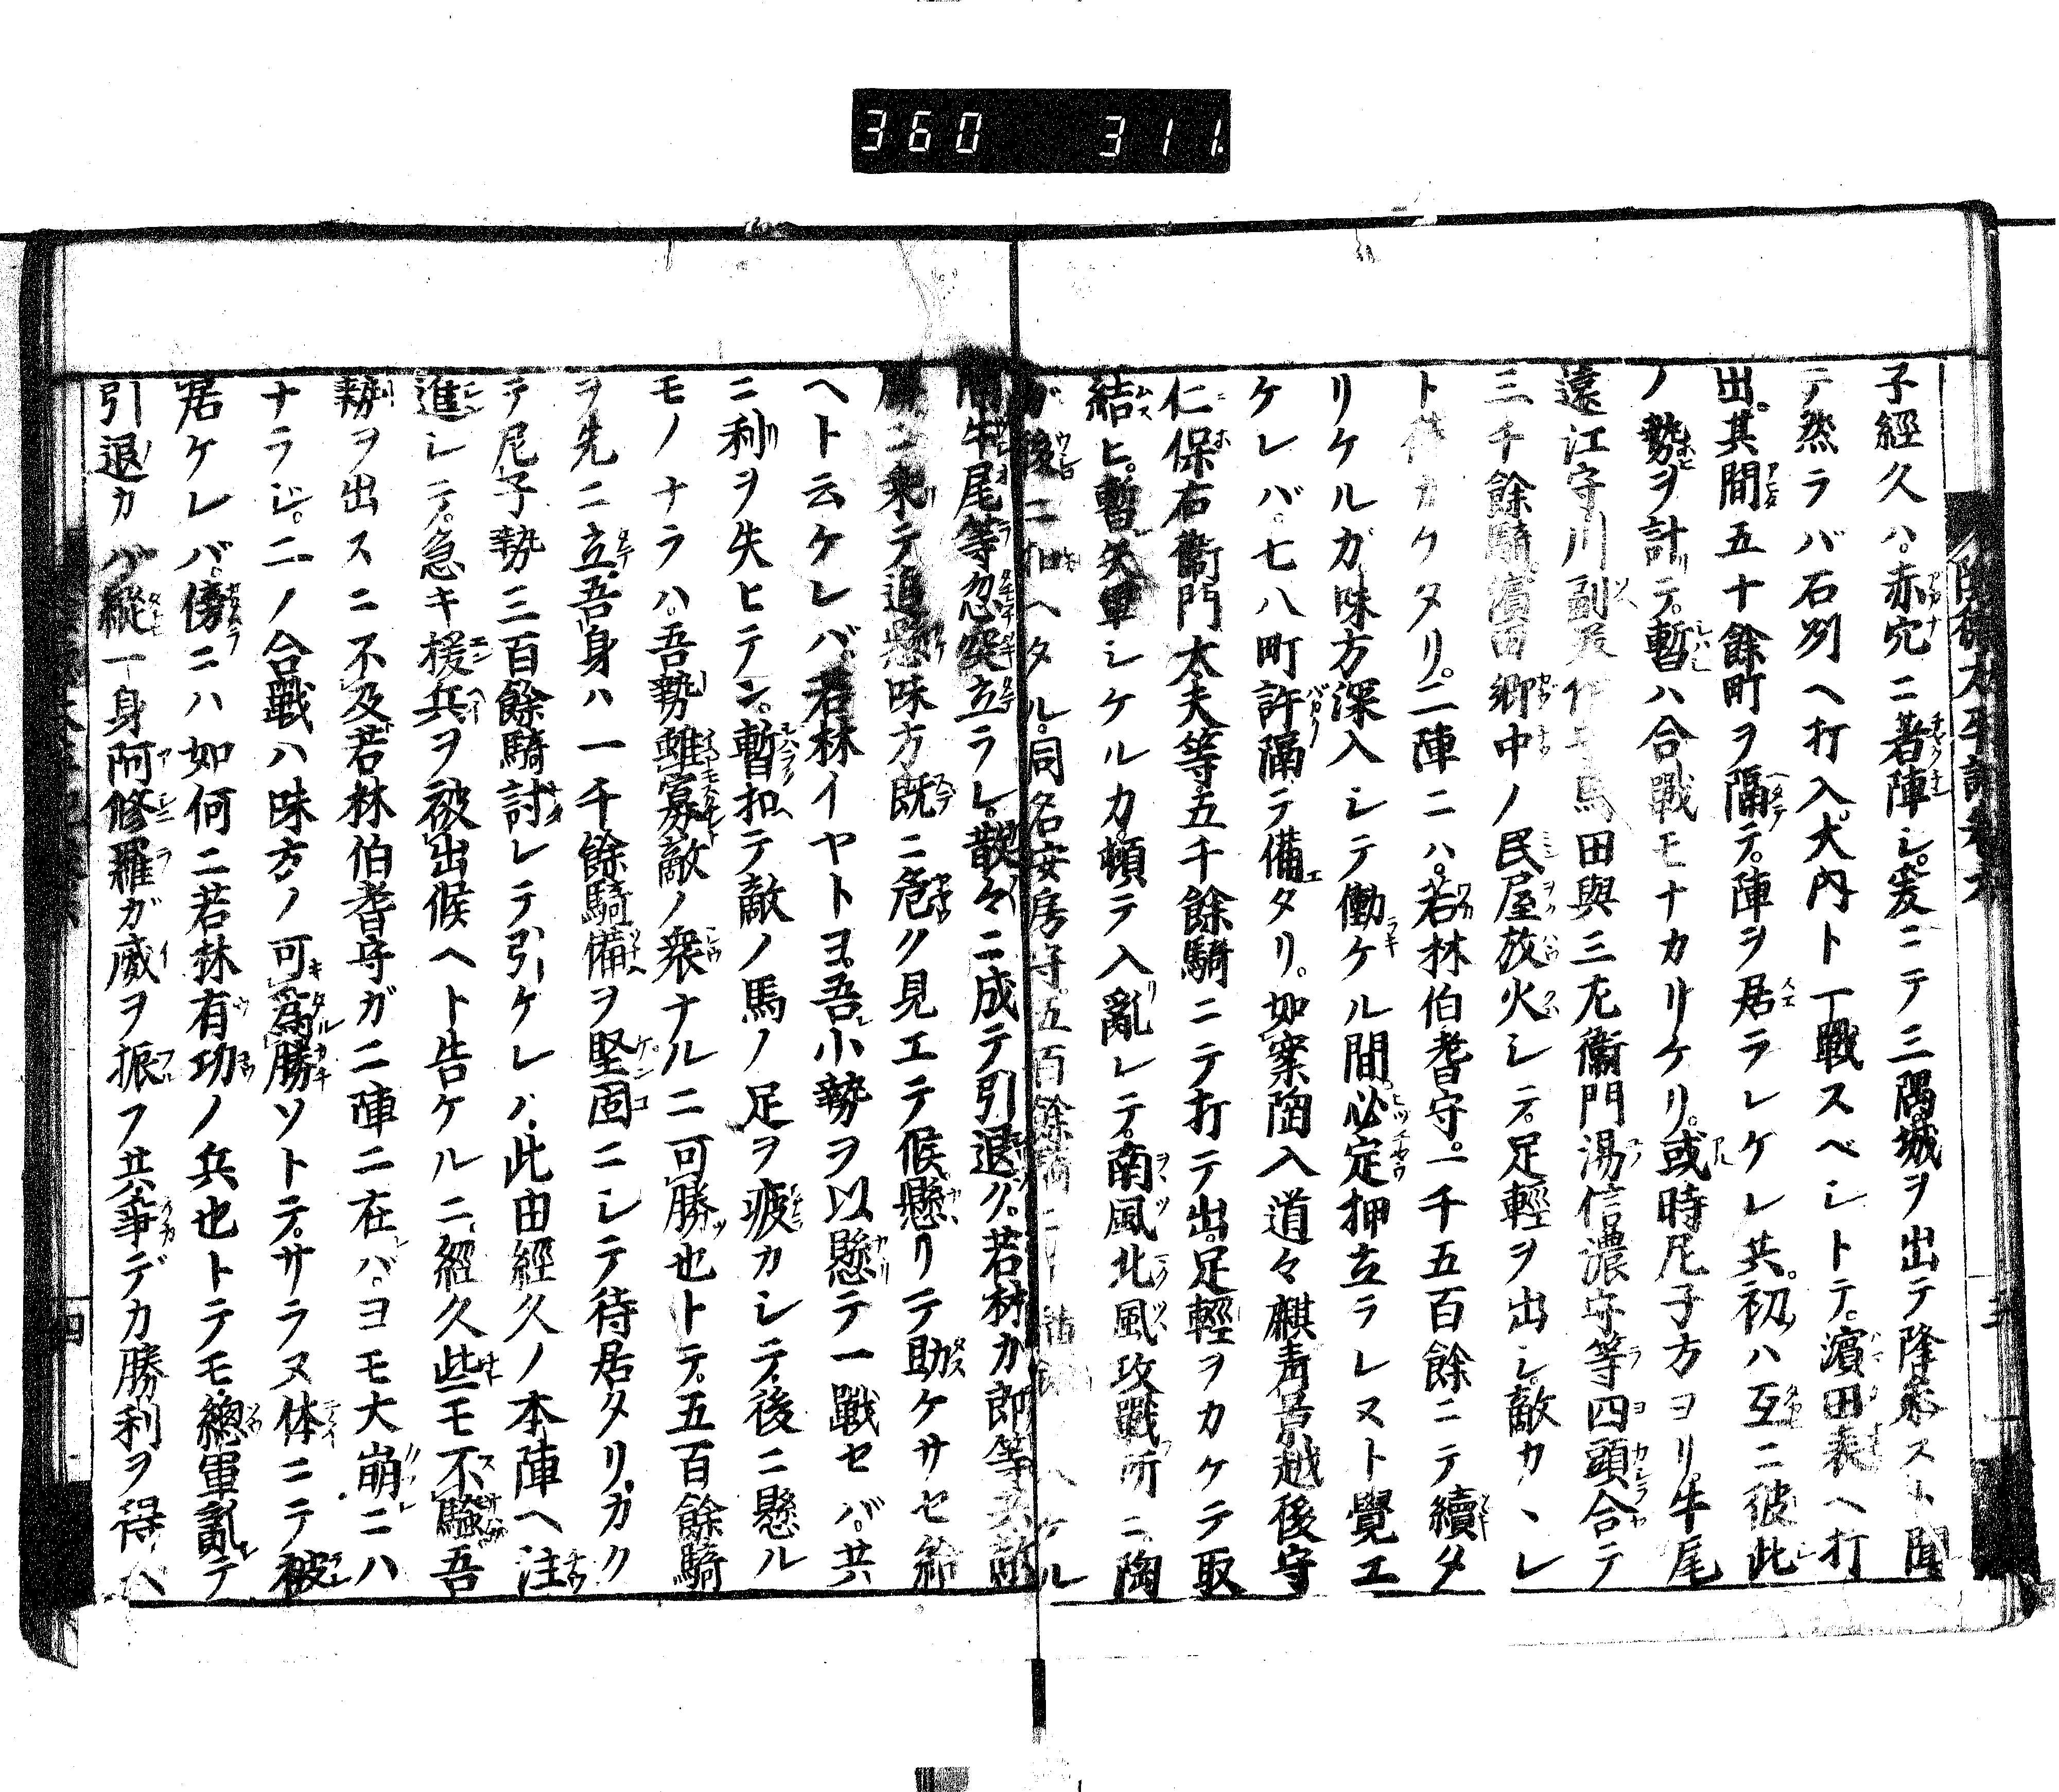 360 311.
子經久ハ。赤穴ニ著陣シ。爰ニテ三隅城ヲ出テ降參スト聞
テ然ラバ石州ヘ打入。大内ト一戰スベシトテ。濱田表ヘ打
出。其間五十餘町ヲ隔テ。陣ヲ居ラレケレ共。初ハ互ニ彼此
ノ勢ヲ計テ。暫ハ合戰モナカリケリ。或時尼子方ヨリ。牛尾
遠江守川副 馬田與三左衞門湯信濃守等四頭合テ
三千餘騎濱田郷中ノ民屋放火シテ。足輕ヲ出シ。敵カヽレ
ト待カケタリ。二陣ニハ。若林伯耆守。一千五百餘ニテ續タ
リケルガ。味方深入シテ働ケル間。必定押立ラレヌト覺エ
ケレバ。七八町許隔テ備タリ。如案陶入道々麒青景越後守
仁保右衞門太夫等。五千餘騎ニテ打テ出。足輕ヲカケテ取
結ヒ。暫矢軍シケルカ。頓テ入亂レテ。南風北風攻戰所ニ。陶
ガ後ニ扣ヘタル。同名安房守。五百餘 ケル
間牛尾等忽突立ラレ。散々ニ成テ引退ク。若林カ郎等共敵
勝ニ乘テ追懸。味方既ニ危ク見エテ候。懸リテ助ケサセ給
ヘト云ケレバ。若林イヤトヨ。吾小勢ヲ以懸テ一戰セバ。共
ニ利ヲ失ヒテン。暫扣テ敵ノ馬ノ足ヲ疲カシテ。後ニ懸ル
モノナラハ。吾勢雖寡敵ノ衆ナルニ可勝也トテ。五百餘騎
ヲ先ニ立。吾身ハ一千餘騎備ヲ堅固ニシテ待居タリ。カク
テ尼子勢三百餘騎討レテ引ケレハ。此由經久ノ本陣ヘ注
進シテ。急キ援兵ヲ被出候ヘト告ケルニ。經久些モ不騒吾
勢ヲ出スニ不及。若林伯耆守ガ二陣ニ在バ。ヨモ大崩ニハ
ナラジ。二ノ合戰ハ味方ノ可爲勝ソトテ。サラヌ体ニテ被
居ケレバ。傍ニハ如何ニ若林有功ノ兵也トテモ。總軍亂テ
引退カバ。縱一身阿修羅ガ威ヲ振フ共。爭デカ勝利ヲ得ヘ